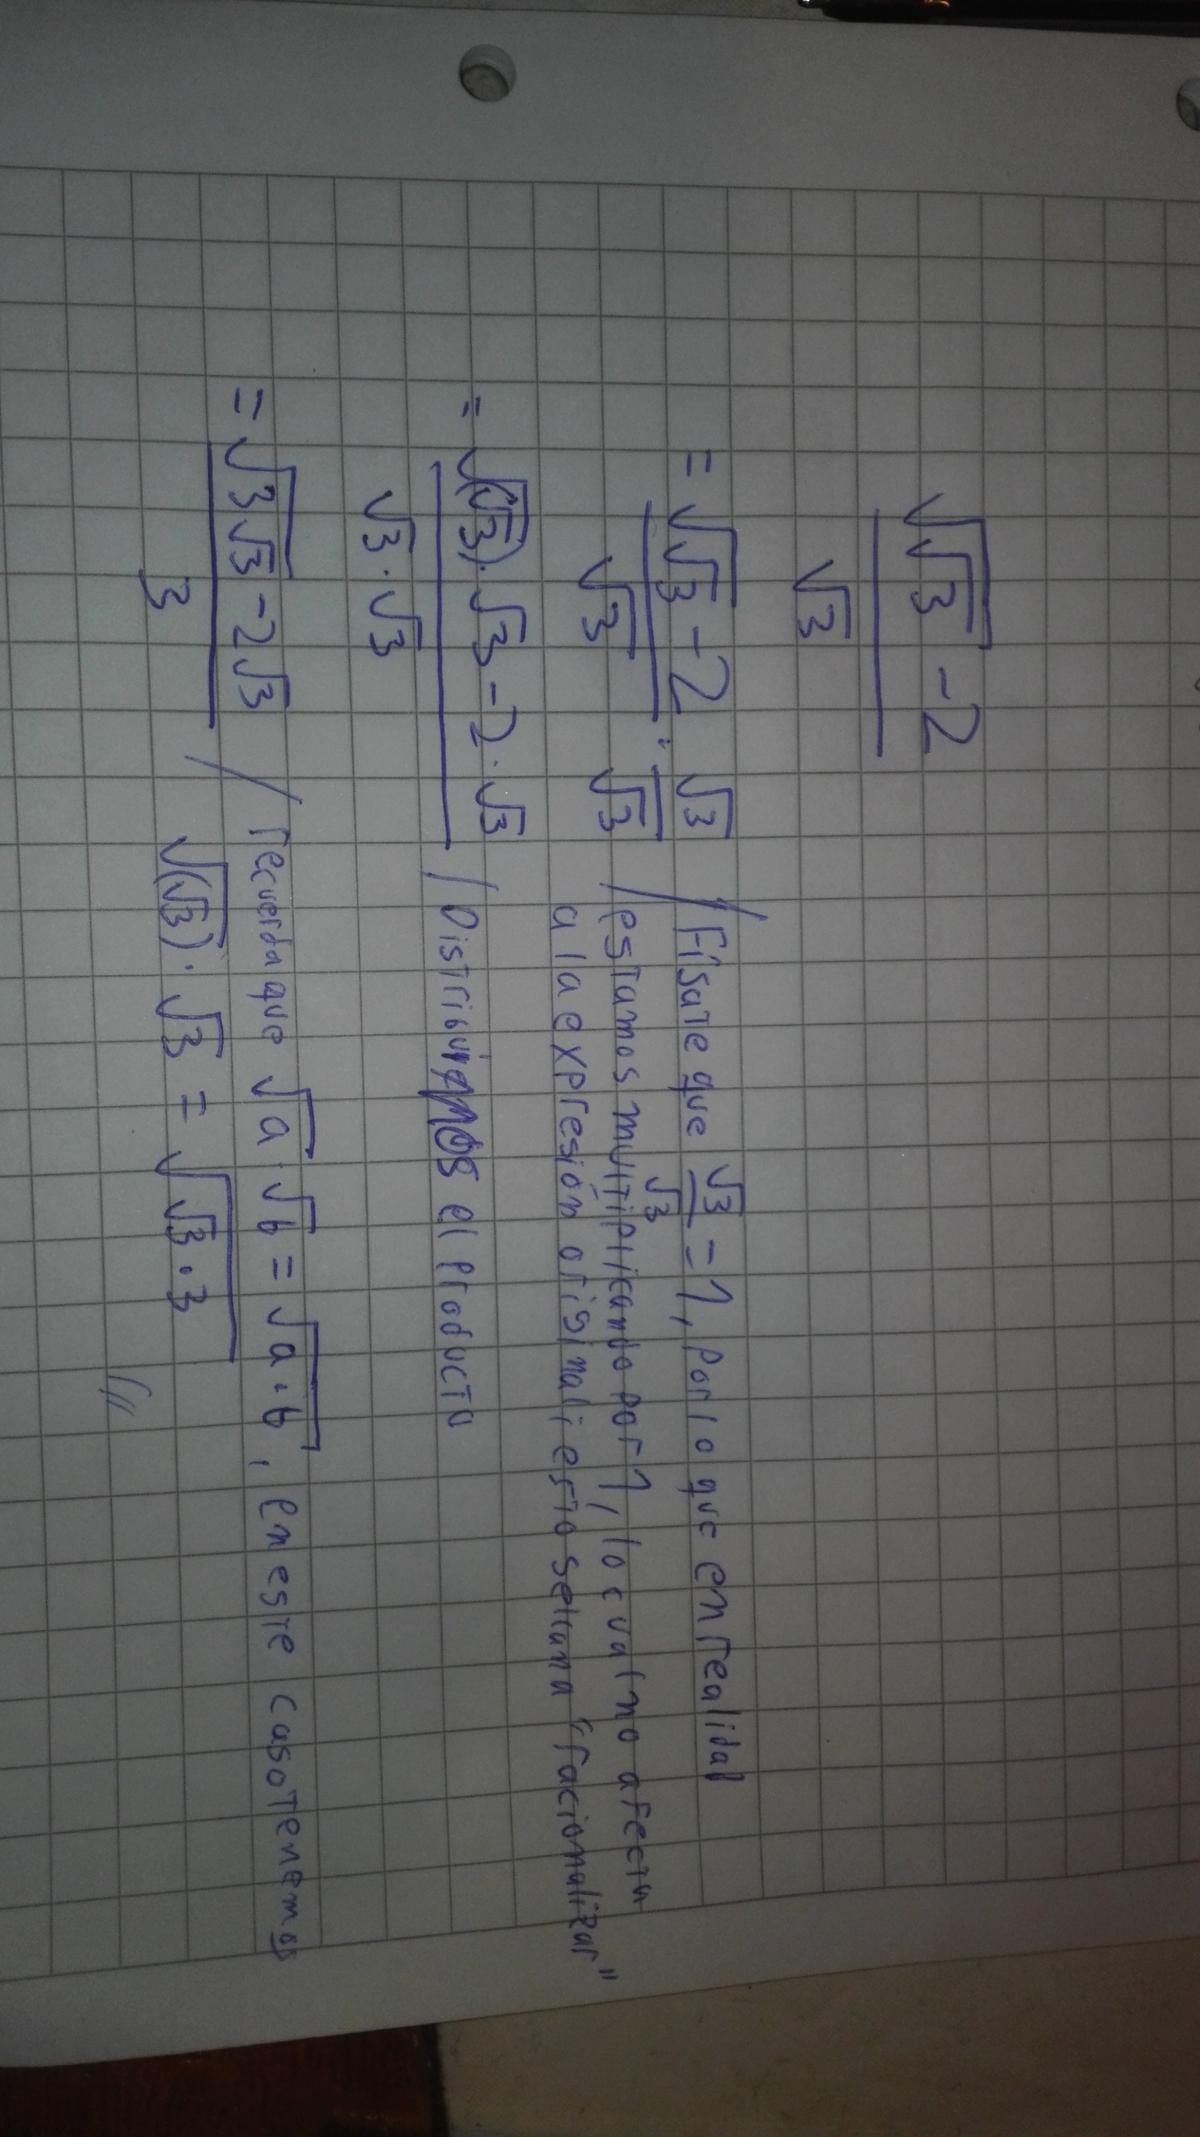 √(√3) - 2
√3
= √(√3) - 2 / √3 · √3 / √3 / Físate que √3/√3 = 1, por lo que en realidad
/ estamos multiplicando por 1, lo cual no afecta
a la expresión original; esto se llama "racionalizar"
= √(√3) · √3 - 2 · √3 / Distribuimos el producto
√3 · √3
= √(3√3) - 2√3 / recuerda que √a · √b = √(a·b), en este caso tenemos
3
√(√3) · √3 = √(√3 · 3)